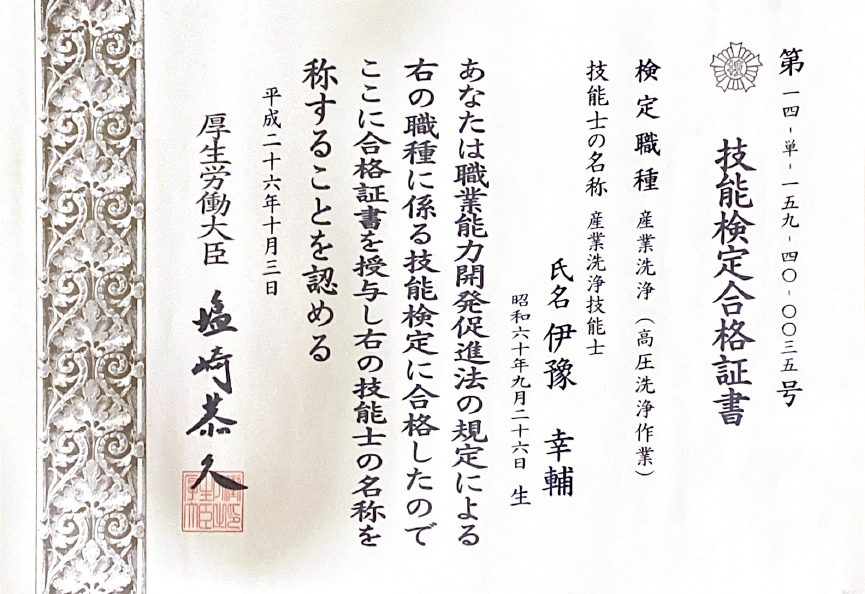 第一四-単-一五九-四〇-〇〇三五号
技能検定合格証書
検定職種 産業洗浄(高圧洗浄作業)
技能士の名称 産業洗浄技能士
氏名 伊豫 幸輔
昭和六十年九月二十六日 生
あなたは職業能力開発促進法の規定による
右の職種に係る技能検定に合格したので
ここに合格証書を授与し右の技能士の名称を
称することを認める
平成二十六年十月三日
厚生労働大臣 塩崎恭久